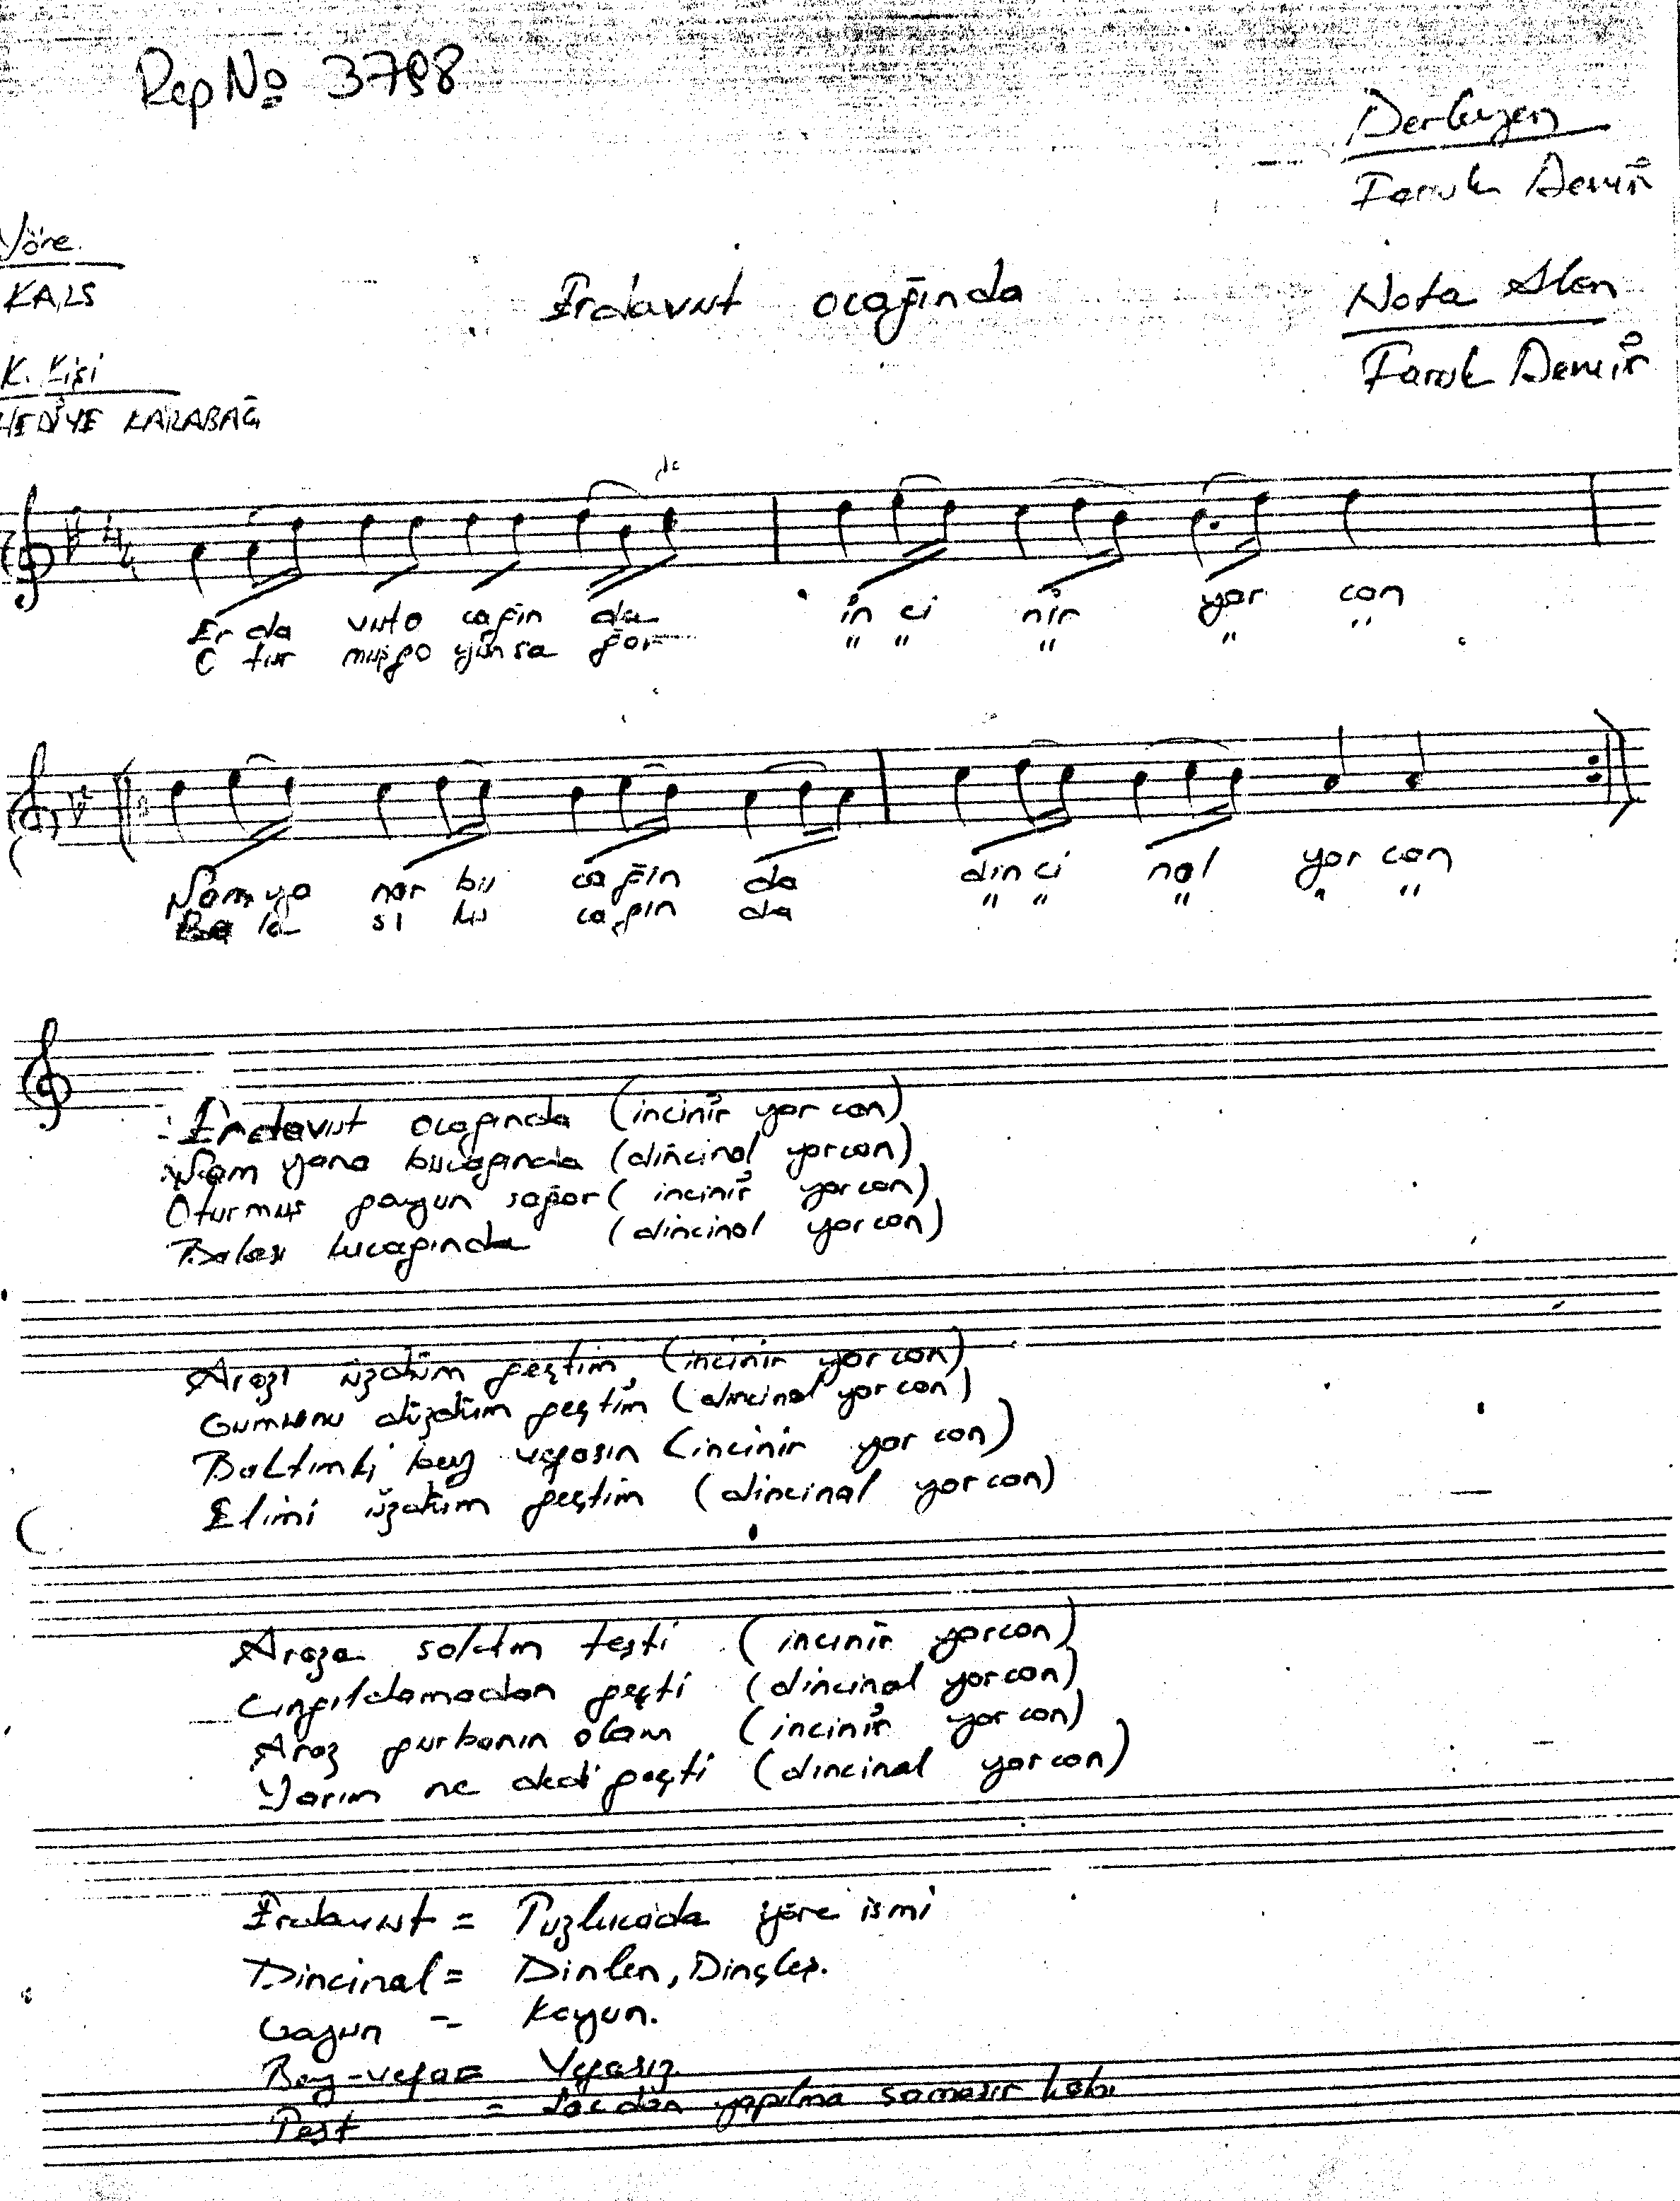 Rep No 3798
Derleyen
Faruk Demir
Yöre
KARS
Erdavut ocağında
Nota Alan
Faruk Demir
K. Kişi
HEDİYE KARABAĞ
Er da vuto cağın da in ci nir yar can
O tur muşgo yunsa ğar " " " " "
Nam ya nar bu cağın da din ci nal yar can
Ba la sı ku cağın da " " " " "
Erdavut ocağında (incinir yar can)
Nam yana bucağında (dincinal yarcan)
Oturmuş goyun sağar (incinir yarcan)
Balası kucağında (dincinal yarcan)
Arazı üzdüm geçtim (incinir yar can)
Gumunu düzdüm geçtim (dincinal yarcan)
Baktımki bey vefasın (incinir yar can)
Elimi üzdüm geçtim (dincinal yarcan)
Araza saldım teşti (incinir yarcan)
Cıngıldamadan geçti (dincinal yarcan)
Araz gurbanın olam (incinir yarcan)
Yarım ne dedi geçti (dincinal yarcan)
Erdavut = Tuzlucada yöre ismi
Dincinal = Dinlen, Dinçleş.
Goyun = Koyun.
Bey-vefa = Vefasız
Teşt = Sacdan yapılma çamaşır kabı